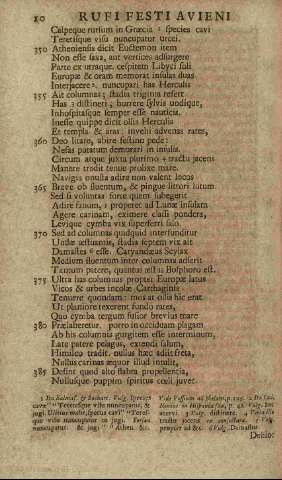 10 RUFI FESTI AVIENI
Calpeque rursum in Græcia 1 species cavi
Teretisque visu nuncupatur urcei.
350 Atheniensis dicit Euctemon item
Non esse saxa, aut vertices adsurgere
Parte ex utraque. cespitem Libyci soli
Europæ & oram memorat insulas duas
Interjacere 2. nuncupari has Herculis
355 Ait columnas; stadia triginta refert
Has 3 distineri; horrere sylvis undique,
Inhospitasque semper esse nauticis.
Inesse quippe dicit ollis Herculis
Et templa & aras: invehi advenas rates,
360 Deo litare, abire festino pede:
Nefas putatum demorari in insulis.
Circum atque juxta plurimo 4 tractu jacens
Manere tradit tenue prolixe mare.
Navigia onusta adire non valent locos
365 Breve ob fluentum, & pingue littori lutum
Sed si voluntas forte quem subegerit
Adire fanum, 5 properet ad Lunæ insulam
Agere carinam, eximere classi pondera,
Levique cymba vix superferri salo.
370 Sed ad columnas quidquid interfunditur
Undæ æstuantis, stadia septem vix ait
Damastes 6 esse. Caryandæus Scylax
Medium fluentum inter columnas adserit
Tantum patere, quantus æstus Bosphoro est.
375 Ultra has columnas propter Europæ latus
Vicos & urbes incolæ Carthaginis
Tenuere quondam: mos at ollis hic erat
Ut planiore texerent fundo rates,
Quo cymba tergum fusior brevius mare
380 Prælaberetur. porro in occiduam plagam
Ab his columnis gurgitem esse interminum,
Late patere pelagus, extendi salum,
Himilco tradit. nullus hæc adit freta,
Nullus carinas æquor illud intulit,
385 Desint quod alto flabra propellentia,
Nullusque puppim spiritus cœli juvet.
teresque visu nuncupatur &
jugi. & jugi
Vide Vossium ad Melam,
3 Vulg. distinere. 4
tractu jacens
proper ad &c. 6 Vulg. Damastus
Dehinc